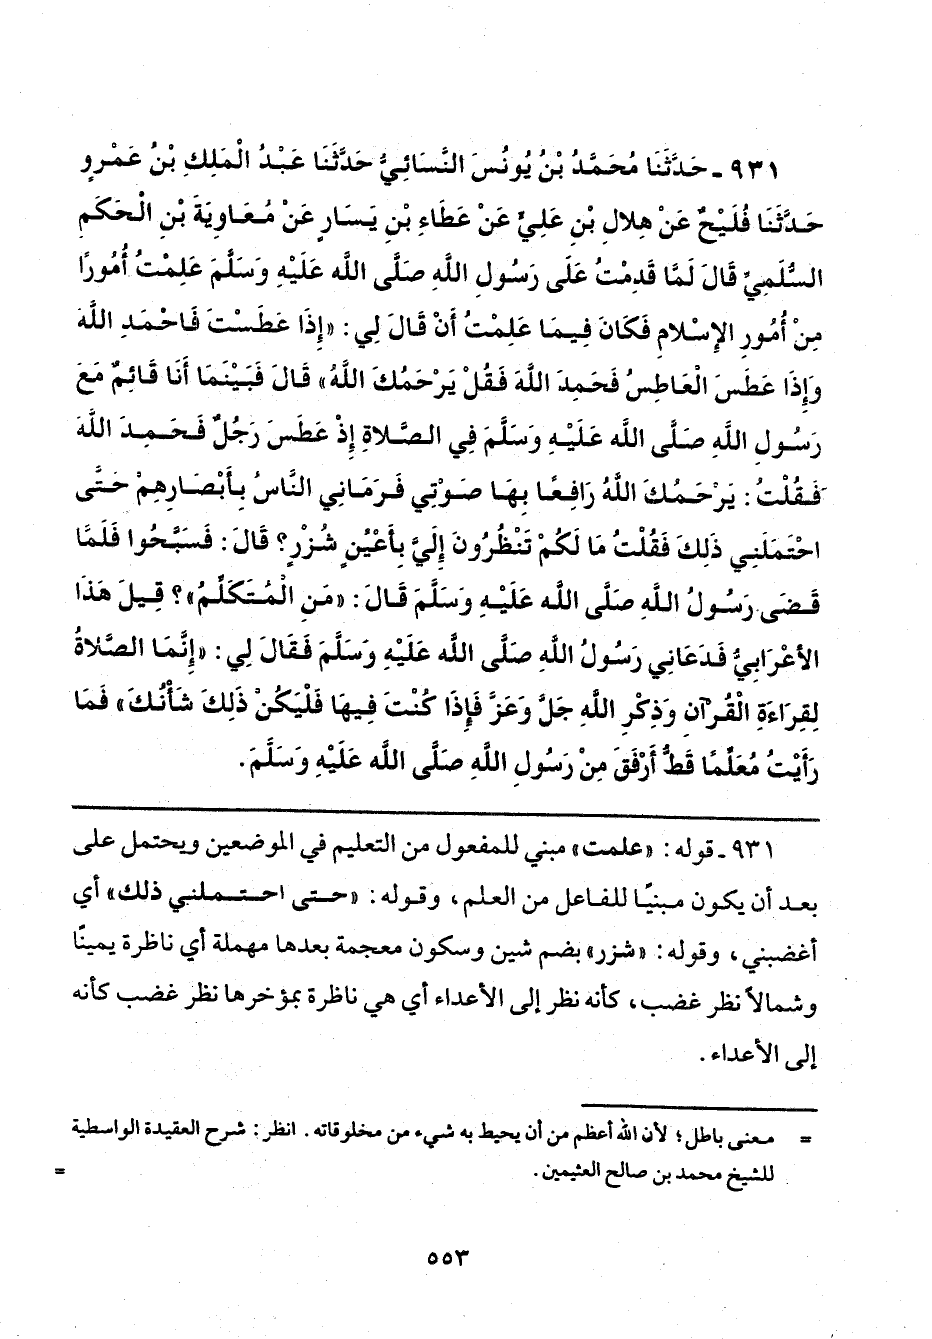 ٩٣١ ـ حَدَّثَنَا مُحَمَّدُ بْنُ يُونُسَ النَّسَائِيُّ حَدَّثَنَا عَبْدُ الْمَلِكِ بْنُ عَمْرٍو
حَدَّثَنَا فُلَيْحٌ عَنْ هِلالِ بْنِ عَلِيٍّ عَنْ عَطَاءِ بْنِ يَسَارٍ عَنْ مُعَاوِيَةَ بْنِ الْحَكَمِ
السُّلَمِيِّ قَالَ لَمَّا قَدِمْتُ عَلَى رَسُولِ اللَّهِ صَلَّى اللَّه عَلَيْهِ وَسَلَّمَ عَلِمْتُ أُمُورًا
مِنْ أُمُورِ الإِسْلامِ فَكَانَ فِيمَا عَلِمْتُ أَنْ قَالَ لِي: «إِذَا عَطَسْتَ فَاحْمَدِ اللَّهَ
وَإِذَا عَطَسَ الْعَاطِسُ فَحَمِدَ اللَّهَ فَقُلْ يَرْحَمُكَ اللَّهُ» قَالَ فَبَيْنَمَا أَنَا قَائِمٌ مَعَ
رَسُولِ اللَّهِ صَلَّى اللَّه عَلَيْهِ وَسَلَّمَ فِي الصَّلاةِ إِذْ عَطَسَ رَجُلٌ فَحَمِدَ اللَّهَ
فَقُلْتُ: يَرْحَمُكَ اللَّهُ رَافِعًا بِهَا صَوْتِي فَرَمَانِي النَّاسُ بِأَبْصَارِهِمْ حَتَّى
احْتَمَلَنِي ذَلِكَ فَقُلْتُ مَا لَكُمْ تَنْظُرُونَ إِلَيَّ بِأَعْيُنٍ شُزْرٍ؟ قَالَ: فَسَبَّحُوا فَلَمَّا
قَضَى رَسُولُ اللَّهِ صَلَّى اللَّه عَلَيْهِ وَسَلَّمَ قَالَ: «مَنِ الْمُتَكَلِّمُ»؟ قِيلَ هَذَا
الأَعْرَابِيُّ فَدَعَانِي رَسُولُ اللَّهِ صَلَّى اللَّه عَلَيْهِ وَسَلَّمَ فَقَالَ لِي: «إِنَّمَا الصَّلاةُ
لِقِرَاءَةِ الْقُرْآنِ وَذِكْرِ اللَّهِ جَلَّ وَعَزَّ فَإِذَا كُنْتَ فِيهَا فَلْيَكُنْ ذَلِكَ شَأْنُكَ» فَمَا
رَأَيْتُ مُعَلِّمًا قَطُّ أَرْفَقَ مِنْ رَسُولِ اللَّهِ صَلَّى اللَّه عَلَيْهِ وَسَلَّمَ.
٩٣١ ـ قوله: «علمت» مبني للمفعول من التعليم في الموضعين ويحتمل على
بعد أن يكون مبنيًا للفاعل من العلم، وقوله: «حتى احتملني ذلك» أي
أغضبني، وقوله: «شزر» بضم شين وسكون معجمة بعدها مهملة أي ناظرة يمينًا
وشمالاً نظر غضب، كأنه نظر إلى الأعداء أي هي ناظرة بمؤخرها نظر غضب كأنه
إلى الأعداء.
= معنى باطل؛ لأن الله أعظم من أن يحيط به شيء من مخلوقاته. انظر: شرح العقيدة الواسطية
للشيخ محمد بن صالح العثيمين. =
٥٥٣